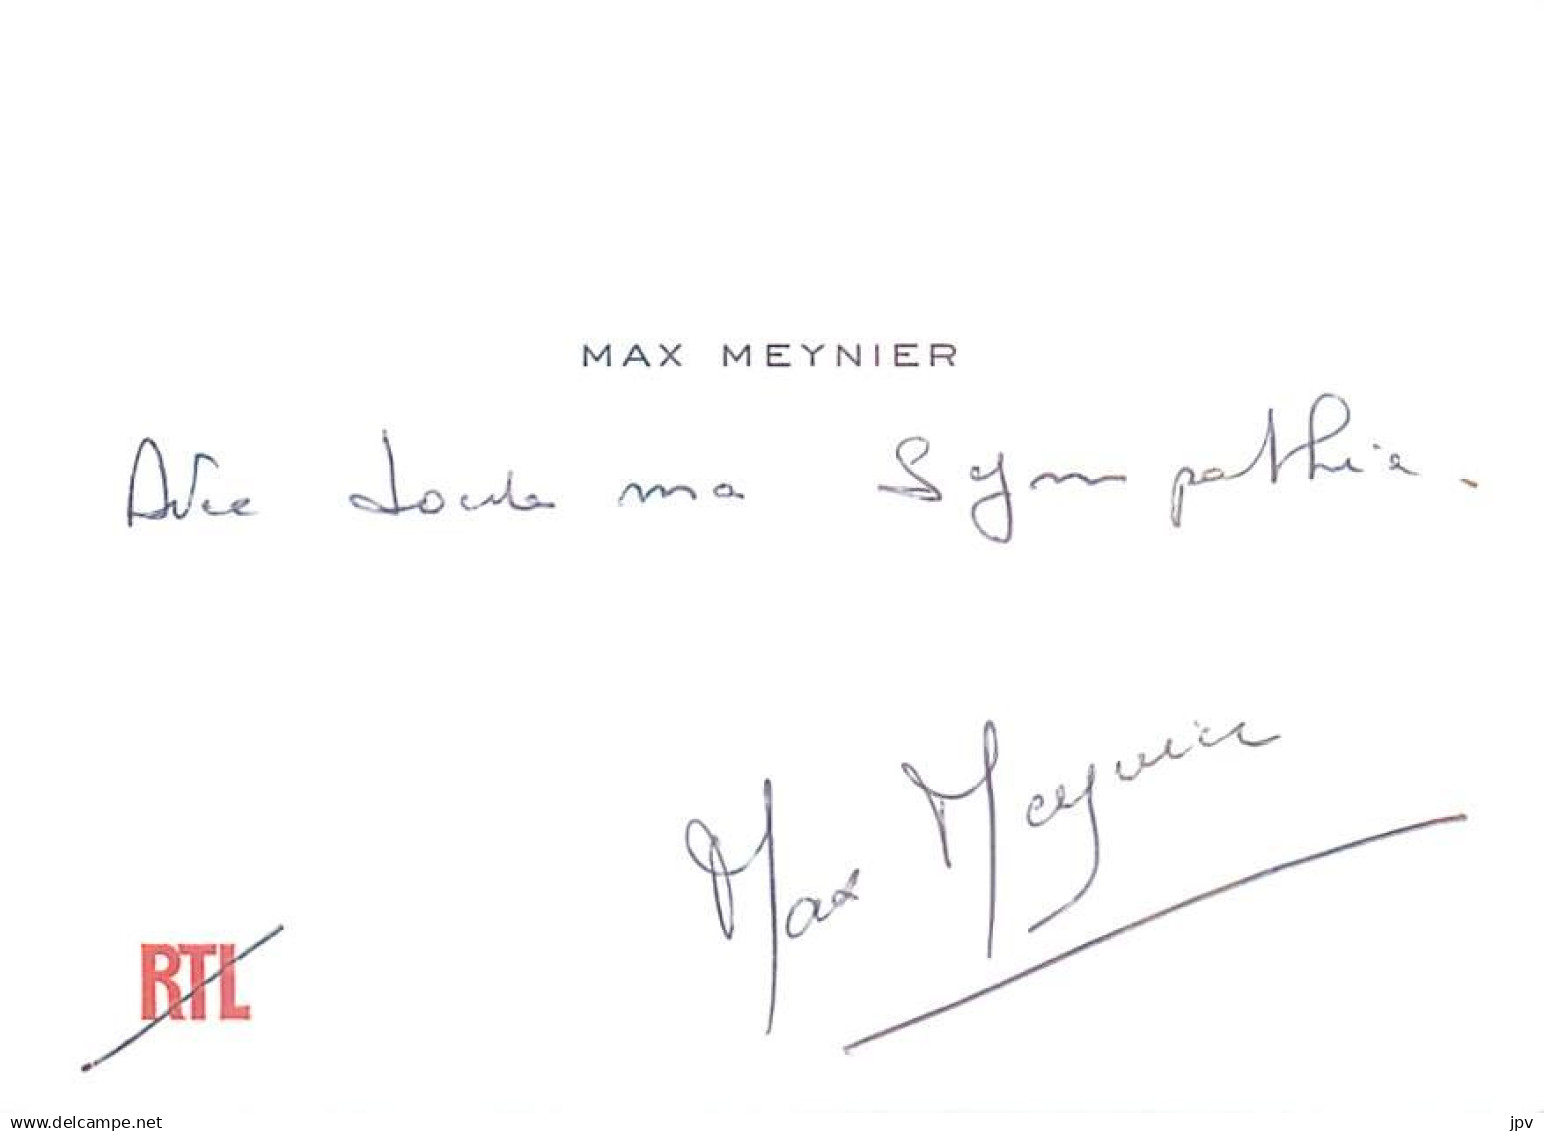 MAX MEYNIER
Avec toute ma Sympathie.
Max Meynier
RTL
www.delcampe.net
jpv